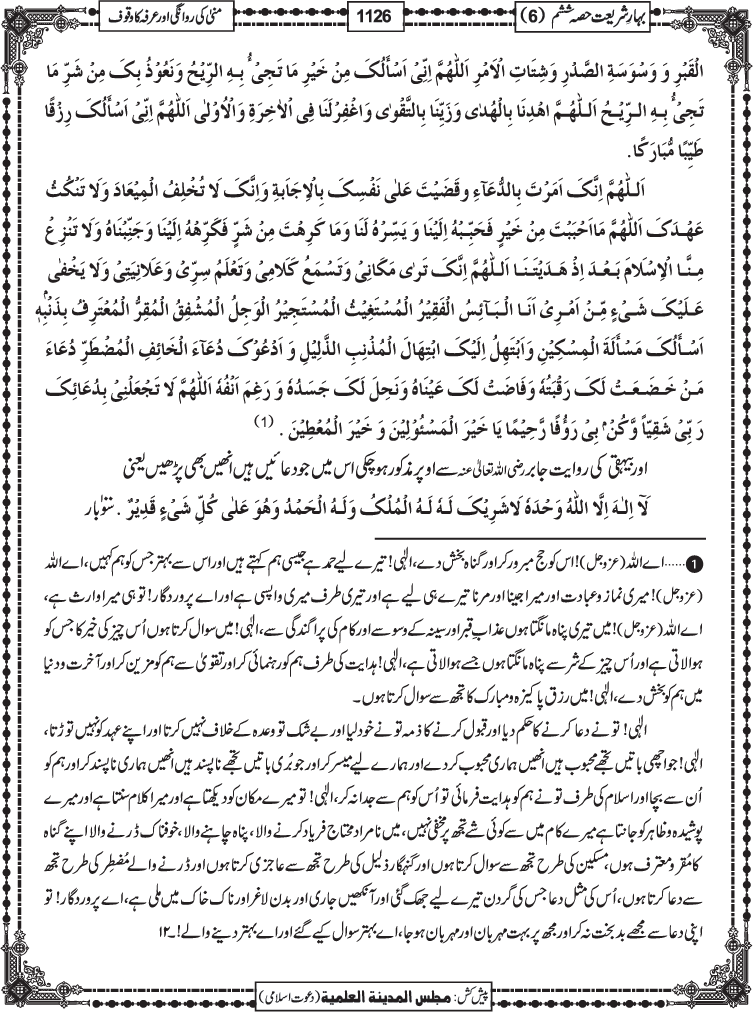 بہارِ شریعت حصہ ششم (6)
1126
منیٰ کی روانگی اور عرفہ کا وقوف
الْقَبْرِ وَ وَسْوَسَةِ الصَّدْرِ وَشِتَاتِ الْاَمْرِ اَللّٰهُمَّ اِنِّیْ اَسْأَلُکَ مِنْ خَیْرِ مَا تَجِیْ ُٔ بِهِ الرِّیْحُ وَنَعُوْذُ بِکَ مِنْ شَرِّ مَا
تَجِیْ ُٔ بِهِ الرِّیْحُ اَللّٰهُمَّ اهْدِنَا بِالْهُدٰی وَزَیِّنَا بِالتَّقْوٰی وَاغْفِرْلَنَا فِی الْاٰخِرَةِ وَالْاُوْلٰی اَللّٰهُمَّ اِنِّیْ اَسْأَلُکَ رِزْقًا
طَیِّبًا مُّبَارَکًا.
اَللّٰهُمَّ اِنَّکَ اَمَرْتَ بِالدُّعَآءِ وقَضَیْتَ عَلٰی نَفْسِکَ بِالْاِجَابَةِ وَاِنَّکَ لَا تُخْلِفُ الْمِیْعَادَ وَلَا تَنْکُثُ
عَهْدَکَ اَللّٰهُمَّ مَااَحْبَبْتَ مِنْ خَیْرٍ فَحَبِّبْهُ اِلَیْنَا وَ یَسِّرْهُ لَنَا وَمَا کَرِهْتَ مِنْ شَرٍّ فَکَرِّهْهُ اِلَیْنَا وَجَنِّبْنَاهُ وَلَا تَنْزِعْ
مِنَّا الْاِسْلَامَ بَعْدَ اِذْ هَدَیْتَنَا اَللّٰهُمَّ اِنَّکَ تَرٰی مَکَانِیْ وَتَسْمَعُ کَلَامِیْ وَتَعْلَمُ سِرِّیْ وَعَلَانِیَتِیْ وَلَا یَخْفٰی
عَلَیْکَ شَیْءٌ مِّنْ اَمْرِیْ اَنَا الْبَآئِسُ الْفَقِیْرُ الْمُسْتَغِیْثُ الْمُسْتَجِیْرُ الْوَجِلُ الْمُشْفِقُ الْمُقِرُّ الْمُعْتَرِفُ بِذَنْبِهٖ
اَسْأَلُکَ مَسْأَلَةَ الْمِسْکِیْنِ وَاَبْتَهِلُ اِلَیْکَ ابْتِهَالَ الْمُذْنِبِ الذَّلِیْلِ وَ اَدْعُوْکَ دُعَآءَ الْخَائِفِ الْمُضْطَرِّ دُعَاءَ
مَنْ خَضَعَتْ لَکَ رَقْبَتُهٗ وَفَاضَتْ لَکَ عَیْنَاهُ وَنَحِلَ لَکَ جَسَدُهٗ وَ رَغِمَ اَنْفُهٗ اَللّٰهُمَّ لَا تَجْعَلْنِیْ بِدُعَائِکَ
رَبِّیْ شَقِیًّا وَّکُنْ ۢ بِیْ رَؤُفًا رَّحِیْمًا یَا خَیْرَ الْمَسْئُوْلِیْنَ وَ خَیْرَ الْمُعْطِیْنَ . (1)
اور بیہقی کی روایت جابر رضی اللہ تعالیٰ عنہ سے اوپر مذکور ہو چکی اس میں جو دعائیں ہیں انھیں بھی پڑھیں یعنی
لَا اِلٰهَ اِلَّا اللّٰهُ وَحْدَهٗ لَاشَرِیْکَ لَهٗ لَهُ الْمُلْکُ وَلَهُ الْحَمْدُ وَهُوَ عَلٰی کُلِّ شَیْءٍ قَدِیْرٌ . سو۱۰۰بار
1......اے اللہ (عزوجل)! اس کو حج مبرور کر اور گناہ بخش دے، الٰہی! تیرے لیے حمد ہے جیسی ہم کہتے ہیں اور اس سے بہتر جس کو ہم کہیں، اے اللہ
(عزوجل)! میری نماز و عبادت اور میرا جینا اور مرنا تیرے ہی لیے ہے اور تیری طرف میری واپسی ہے اور اے پروردگار! تو ہی میرا وارث ہے،
اے اللہ (عزوجل)! میں تیری پناہ مانگتا ہوں عذاب قبر اور سینہ کے وسوسے اور کام کی پراگندگی سے، الٰہی! میں سوال کرتا ہوں اُس چیز کی خیر کا جس کو
ہوا لاتی ہے اور اُس چیز کے شر سے پناہ مانگتا ہوں جسے ہوا لاتی ہے، الٰہی! ہدایت کی طرف ہم کو رہنمائی کر اور تقویٰ سے ہم کو مزین کر اور آخرت و دنیا
میں ہم کو بخش دے، الٰہی! میں رزق پاکیزہ و مبارک کا تجھ سے سوال کرتا ہوں۔
الٰہی! تو نے دعا کرنے کا حکم دیا اور قبول کرنے کا ذمہ تو نے خود لیا اور بے شک تو وعدہ کے خلاف نہیں کرتا اور اپنے عہد کو نہیں توڑتا،
الٰہی! جو اچھی باتیں تجھے محبوب ہیں انھیں ہماری محبوب کر دے اور ہمارے لیے میسر کر اور جو بُری باتیں تجھے ناپسند ہیں انھیں ہماری ناپسند کر اور ہم کو
اُن سے بچا اور اسلام کی طرف تو نے ہم کو ہدایت فرمائی تو اُس کو ہم سے جدا نہ کر، الٰہی! تو میرے مکان کو دیکھتا ہے اور میرا کلام سنتا ہے اور میرے
پوشیدہ و ظاہر کو جانتا ہے میرے کام میں سے کوئی شے تجھ پر مخفی نہیں، میں نامراد محتاج فریاد کرنے والا، پناہ چاہنے والا، خوفناک ڈرنے والا اپنے گناہ
کا مُقر و معترف ہوں، مسکین کی طرح تجھ سے سوال کرتا ہوں اور گنہگار ذلیل کی طرح تجھ سے عاجزی کرتا ہوں اور ڈرنے والے مُضطِر کی طرح تجھ
سے دعا کرتا ہوں، اُس کی مثل دعا جس کی گردن تیرے لیے جھک گئی اور آنکھیں جاری اور بدن لاغر اور ناک خاک میں ملی ہے، اے پروردگار! تو
اپنی دعا سے مجھے بدبخت نہ کر اور مجھ پر بہت مہربان اور مہربان ہو جا، اے بہتر سوال کیے گئے اور اے بہتر دینے والے! ۔۱۲
پیش کش: مجلس المدینۃ العلمیۃ (دعوت اسلامی)